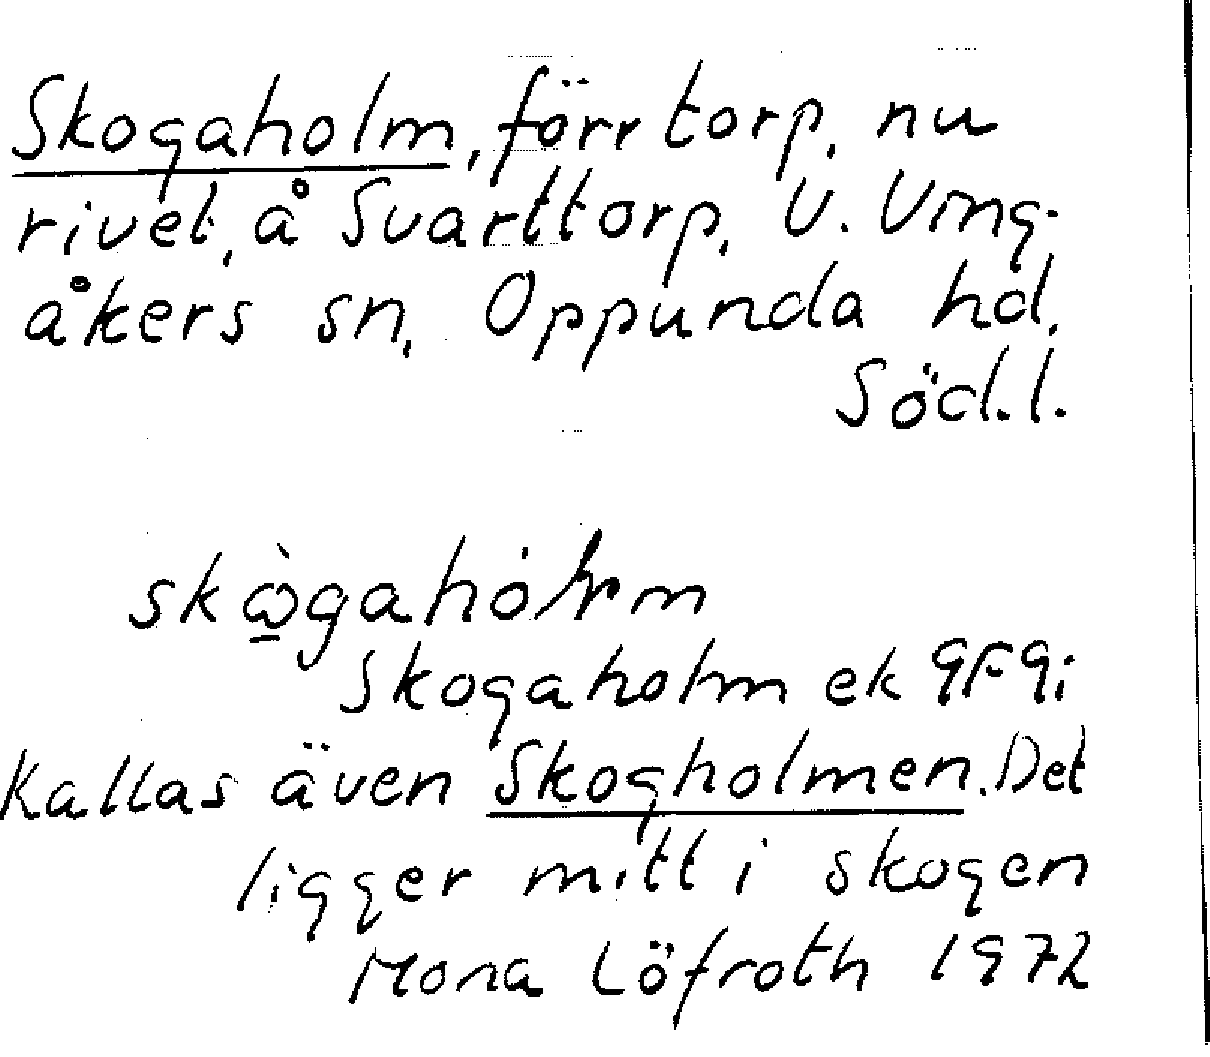 Skogaholm, förr torp, nu
rivet, å Svarttorp, V. Ving-
åkers sn, Oppunda hd,
Söd.l.
Skogaholm ek 9F9i
Kallas även Skogholmen. Det
ligger mitt i skogen
Mona Löfroth 1972